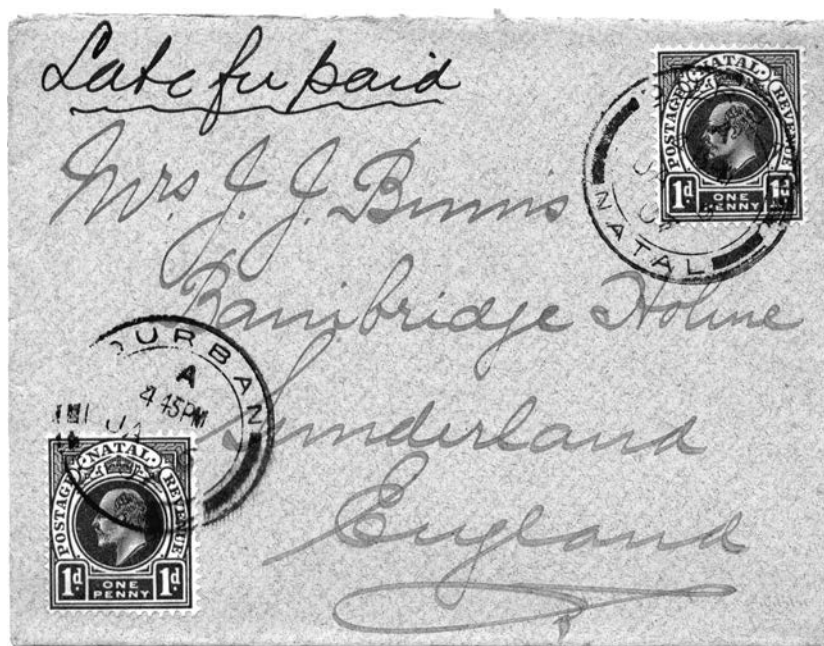 Late fee paid
POSTAGE · NATAL · REVENUE
1d ONE PENNY 1d
NATAL
Mrs J. J. Binns
Bainbridge Holme
Sunderland
England
DURBAN
A
4 45PM
JA
POSTAGE · NATAL · REVENUE
1d ONE PENNY 1d